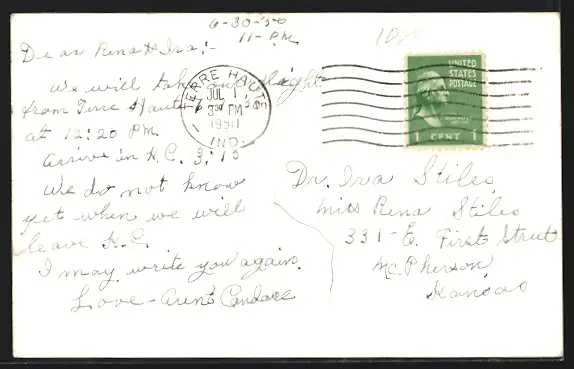 6-30-50
11-PM
Dear Rena & Ira:-
We will take our flight
from Terre Haute
at 12:20 PM
Arrive in K.C. 3:15
We do not know
yet when we will
leave K.C.
I may write you again.
Love - Aunt Candace
TERRE HAUTE
JUL 1
PM
1950
IND.
UNITED
STATES
POSTAGE
1 CENT 1
Dr. Ira Stiles
Miss Rena Stiles
331-E. First Street
McPherson,
Kansas